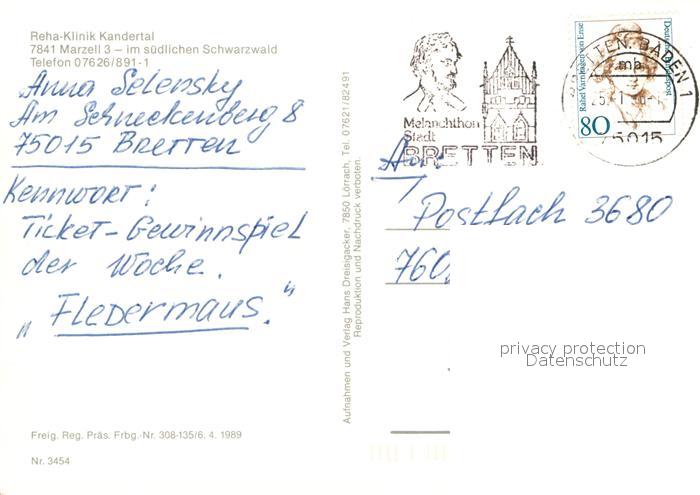 Reha-Klinik Kandertal
7841 Marzell 3 – im südlichen Schwarzwald
Telefon 07626/891-1
Anna Selensky
Am Schneckenberg 8
75015 Bretten
Kennwort:
Ticket-Gewinnspiel
der Woche.
„Fledermaus."
Freig. Reg. Präs. Frbg.-Nr. 308-135/6. 4. 1989
Nr. 3454
Aufnahmen und Verlag Hans Dreisigacker, 7850 Lörrach, Tel. 07621/82491
Reproduktion und Nachdruck verboten.
Melanchthon
Stadt
BRETTEN
BRETTEN, BADEN 1
mb
75015
Deutsche Bundespost
Rahel Varnhagen von Ense
80
An:
Postfach 3680
760
privacy protection
Datenschutz